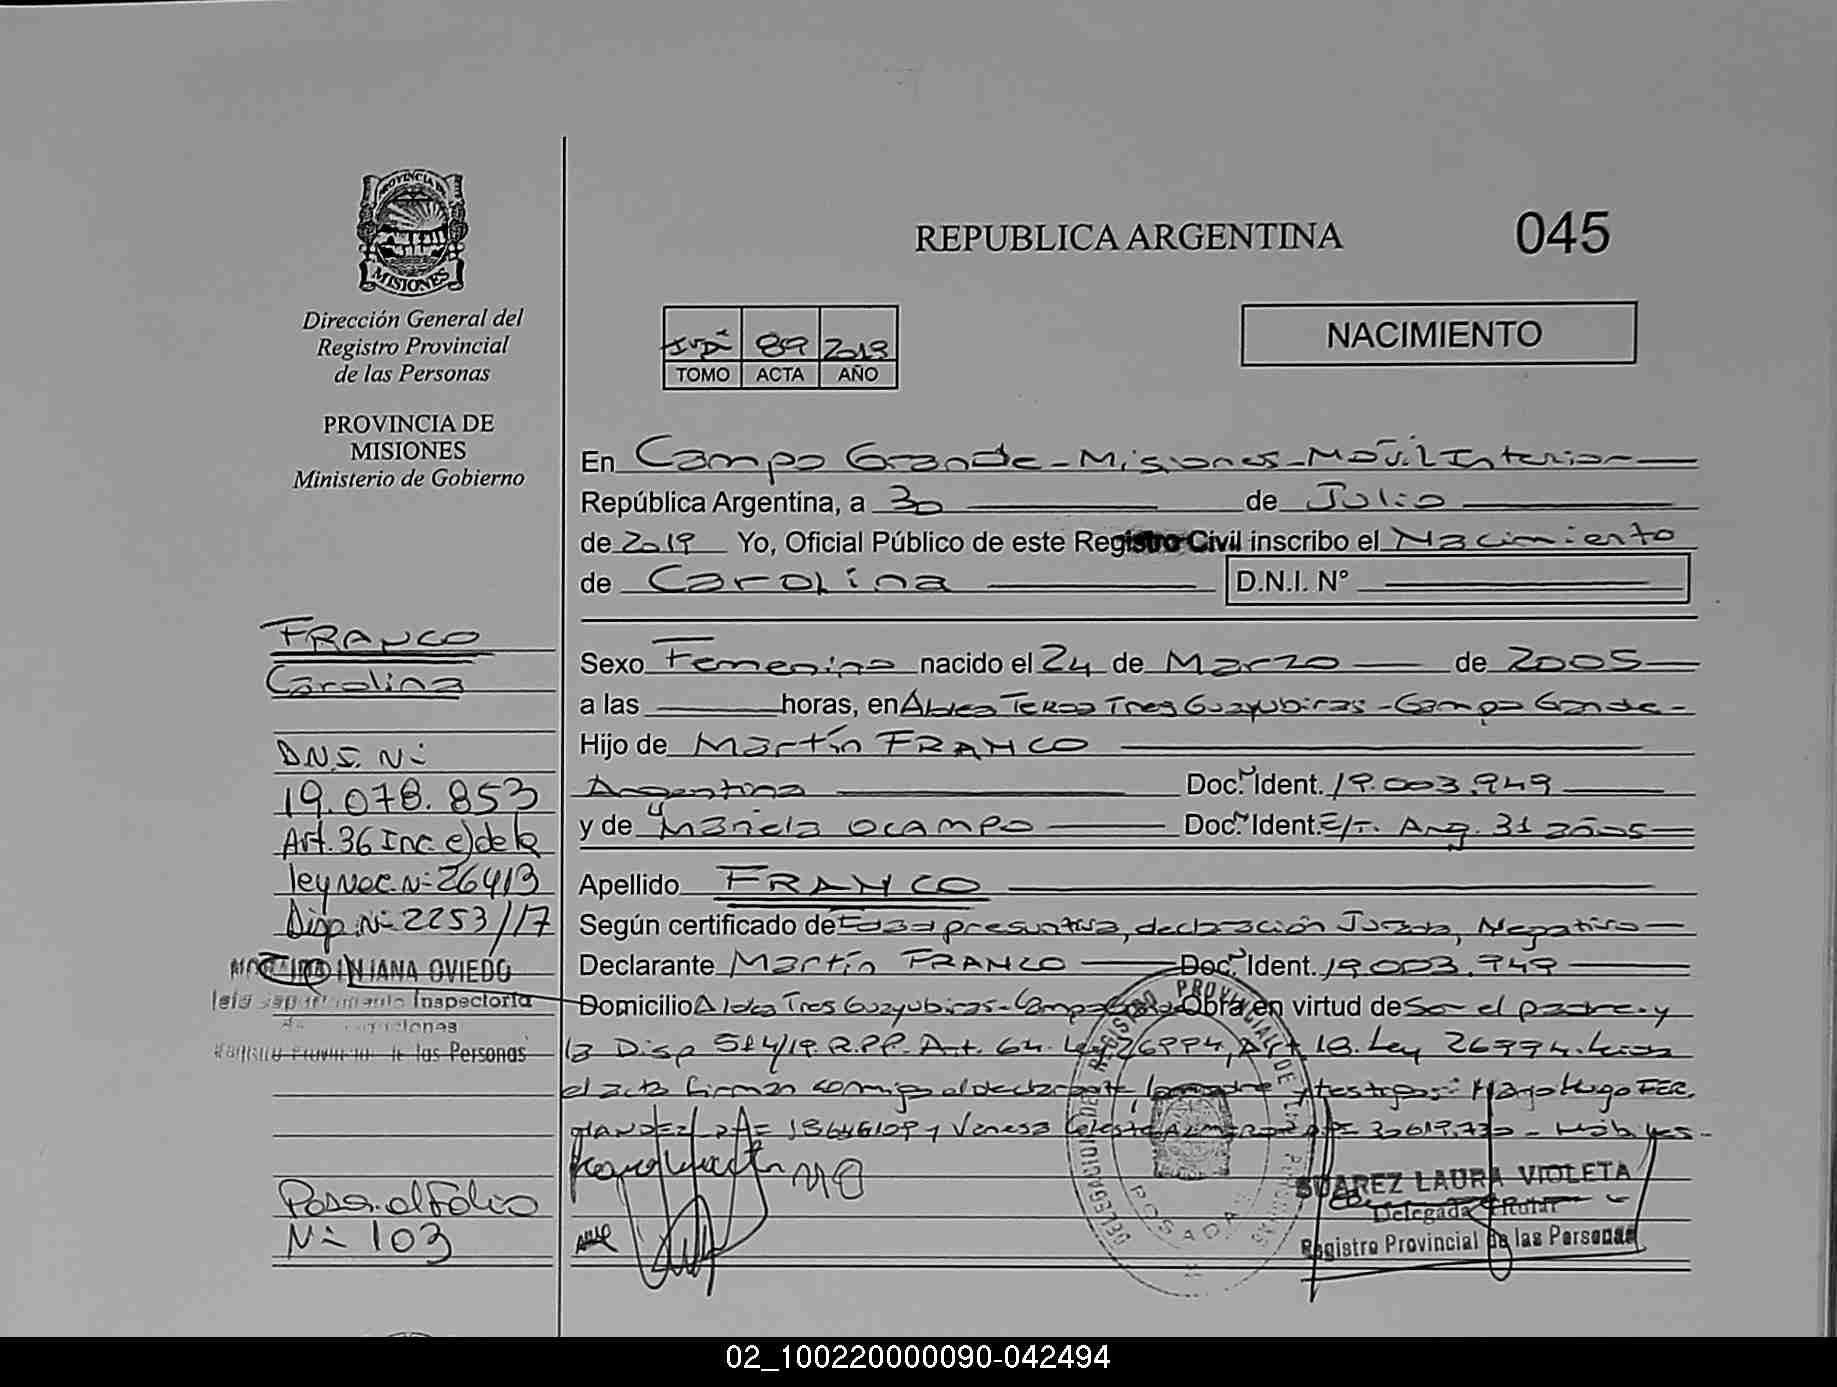 PROVINCIA DE
MISIONES
Dirección General del
Registro Provincial
de las Personas
PROVINCIA DE
MISIONES
Ministerio de Gobierno
FRANCO
Carolina
D.N.I. Nº
19.078.853
Art. 36 Inc. e) de la
ley Nac. Nº 26413
Disp. Nº 2253/17
LILIANA OVIEDO
Inspectoria
Registro Provincial de las Personas
Pasa al Folio
Nº 103
REPUBLICA ARGENTINA
045
89 2019
TOMO ACTA AÑO
NACIMIENTO
En Campo Grande - Misiones - Móvil Interior
República Argentina, a 30 de Julio
de 2019 Yo, Oficial Público de este Registro Civil inscribo el Nacimiento
de Carolina D.N.I. N°
Sexo Femenino nacido el 24 de Marzo de 2005
a las horas, en Aldea Tres Guayubiras - Campo Grande -
Hijo de Martín FRANCO
Argentina Doc. Ident. 19.003.949
y de Mariela OCAMPO Doc. Ident. E/T. Arg. 31 2005
Apellido FRANCO
Según certificado de Edad presuntiva, declaración Jurada, Negativo
Declarante Martín FRANCO Doc. Ident. 19.003.949
Domicilio Aldea Tres Guayubiras - Campo Grande Obra en virtud de Ser el padre y
la Disp 514/19. R.P.P. Art. 64. Ley 26994, Art. 18. Ley 26994. Leída
el acta firman conmigo el declarante, la madre y testigos: Hugo FER
NANDEZ y Vanesa Celeste
DELEGACION DEL REGISTRO PROVINCIAL DE LAS PERSONAS
POSADAS
SUAREZ LAURA VIOLETA
Delegada Titular
Registro Provincial de las Personas
02_100220000090-042494